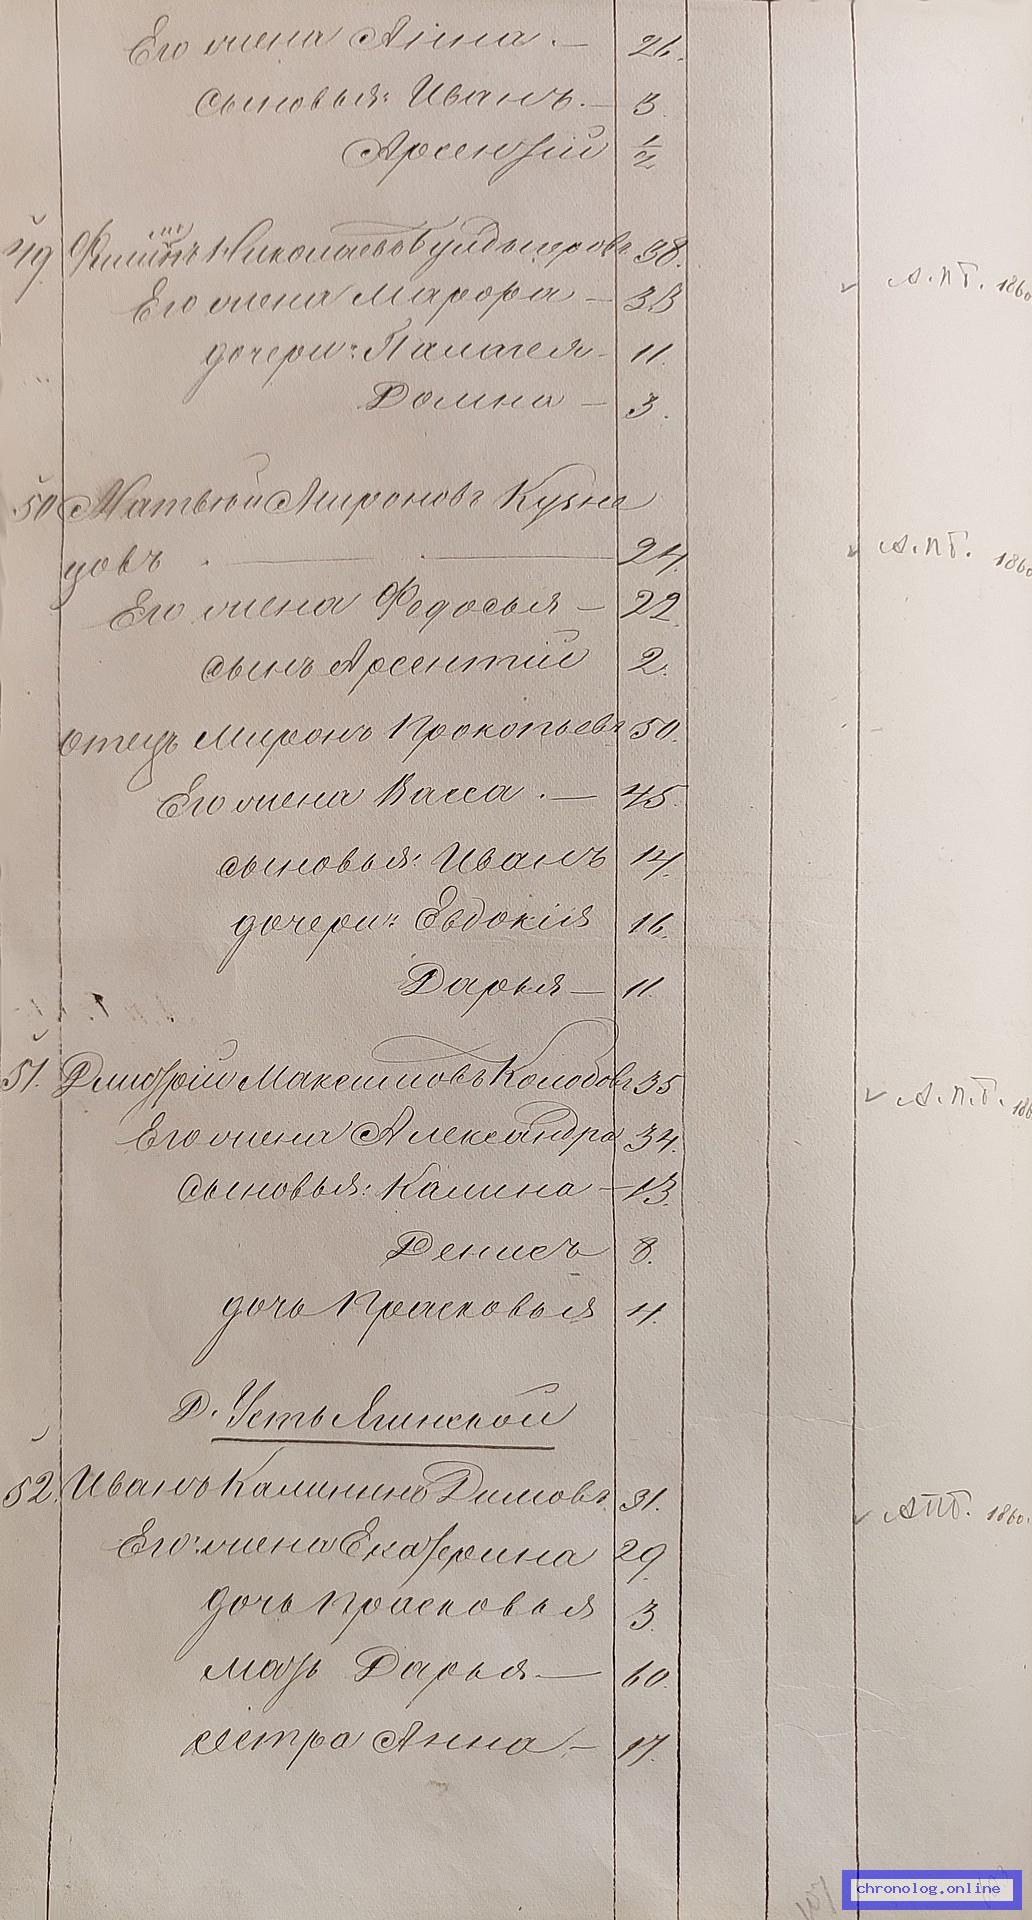 Его жена Анна. — 26.
сыновья: Иванъ. — 3.
Арсентій 1/2
49 Николаевъ 38.
Его жена Марфа — 33
дочери: Палагея — 11.
Домна — 3.
50 Матвей Мироновъ Кузне
цовъ . — . — 24.
Его жена Федосья — 22.
сынъ Арсентій 2.
отецъ Миронъ Прокопьевъ 50.
Его жена Васса . — 45.
сыновья: Иванъ 14.
дочери: Евдокія 16.
Дарья — 11.
51. Дмитрій Максимовъ Колобовъ 35
Его жена Александра 34.
сыновья: Калина — 13.
Денисъ 8.
дочь Прасковья 4.
Д. Усть
52. Иванъ Калининъ Димовъ. 31.
Его жена Екатерина 29.
дочь Прасковья 3.
мать Дарья — 60.
сестра Анна — 17.
А.ПГ. 1860
А.ПГ. 1860
А.П.Г. 186
АПГ. 1860.
107
chronolog.online